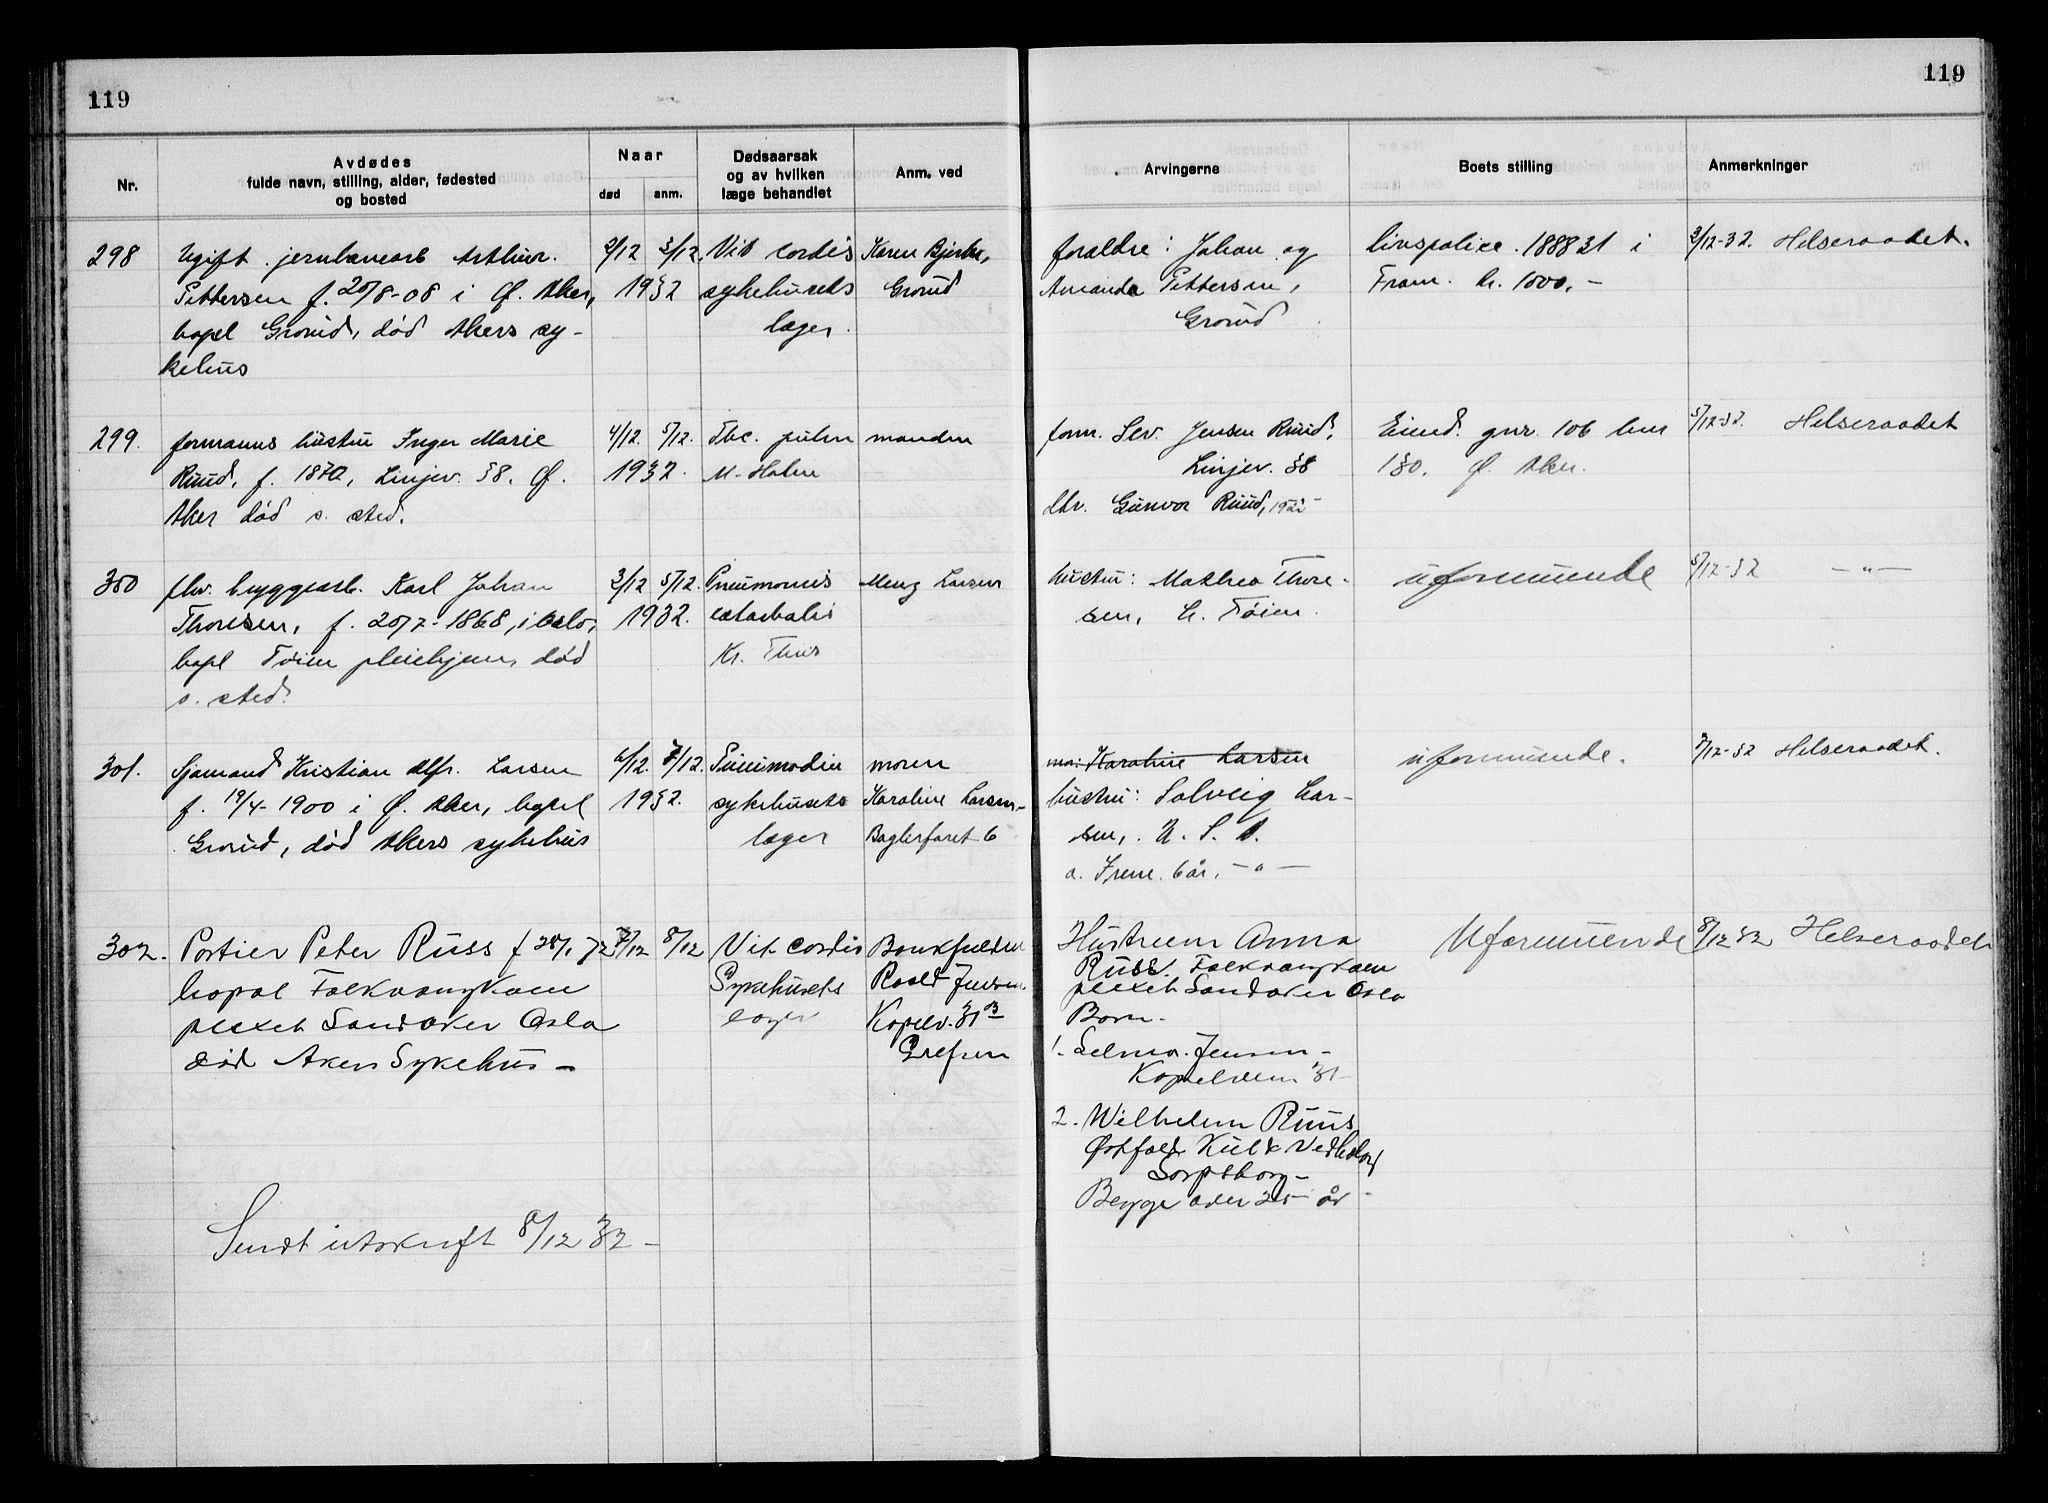 119
119
Nr.
Avdødes
fulde navn, stilling, alder, fødested
og bosted
Naar
død
anm.
Dødsaarsak
og av hvilken
læge behandlet
Anm. ved
Arvingerne
Boets stilling
Anmerkninger
298
Ugift jernbanearb Arthur
Pettersen f. 20/8-08 i Ø. Aker,
bopl Grorud, død Akers sy-
kehus
2/12 3/12
1932
Vit cordis
sykehusets
læger.
Karen Bjerke,
Grorud
foraldre: Johan og
Amanda Pettersen,
Grorud
livspolice 188831 i
Fram. kr. 1000,-
3/12-32. Helseraadet.
299.
formanns hustru Inger Marie
Ruud, f. 1870, Linjev. 58. Ø.
Aker død s. sted.
4/12. 5/12.
1932.
Tbc. pulm
M. Holm
manden
form. Sev. Jensen Ruud,
Linjev. 58
dtr. Gunvor Ruud,
Eiend. gnr. 106 bnr
130. Ø. Aker.
5/12-32. Helseraadet
300
fhv. byggearb. Karl Johan
Thoresen, f. 20/7-1868, i Oslo,
bopl Tøien pleiehjem, død
s. sted.
3/12 5/12.
1932.
Pneumonis
catarhalis
Kr. Thus
Meng Larsen
hustru: Mathea Thore-
sen, h. Tøien.
uformuende
5/12-32 -"-
301.
Sjømand Kristian Alfr. Larsen
f. 19/4-1900 i Ø. Aker, bopel
Grorud, død Akers sykehus
6/12. 7/12.
1932.
Pneumodin
sykehusets
læger
moren
Karoline Larsen
Baglerfaret 6
mor: Karoline Larsen
hustru: Solveig Lar-
sen, U. S. A.
a. Irene 6 år, -"-
uformuende.
7/12-32 Helseraadet.
302.
Portier Peter Russ f 28/1 72
bopæl Folkvangkom
plexet Sandaker Oslo
død Akers Sykehus -
7/12 8/12
Vit. cordis
Sykehusets
læger
Bankfuldm
Roald Jensen
Kapelv. 31 B
Grefsen
Hustruen Anna
Russ. Folkvangkom
plexet Sandaker Oslo
Barn.
1. Selma Jensen -
Kapelveien 31
2. Wilhelm Ruus
Østfold Kul & Vedhandel
Sarpsborg -
Begge over 21 år
Uformuende
8/12 32 Helseraadet
Sendt utskrift 8/12 32 -